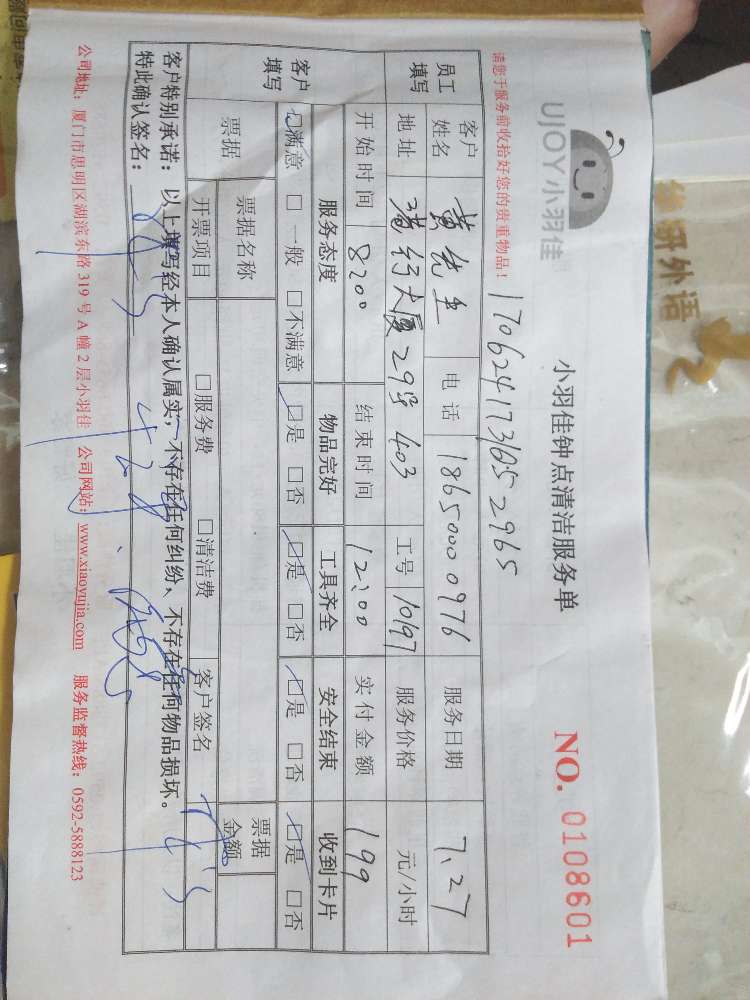 UJOY小羽佳
小羽佳钟点清洁服务单
NO. 0108601
请您于服务前收拾好您的贵重物品！
170624173165 2965
员工填写
客户姓名 黄先生 电话 18650000976 服务日期 7.27
地址 港行大厦29号403 工号 10197 服务价格 元/小时
开始时间 8:00 结束时间 12:00 实付金额 199
客户填写
服务态度 物品完好 工具齐全 安全结束 收到卡片
☑满意 □一般 □不满意 ☑是 □否 ☑是 □否 ☑是 □否 ☑是 □否
票据 票据名称 票据金额
开票项目 □服务费 □清洁费 客户签名
客户特别承诺：以上填写经本人确认属实，不存在任何纠纷、不存在任何物品损坏。
特此确认签名：
公司地址：厦门市思明区湖滨东路319号A幢2层小羽佳 公司网站：www.xiaoyujia.com 服务监督热线：0592-5888123
研外语